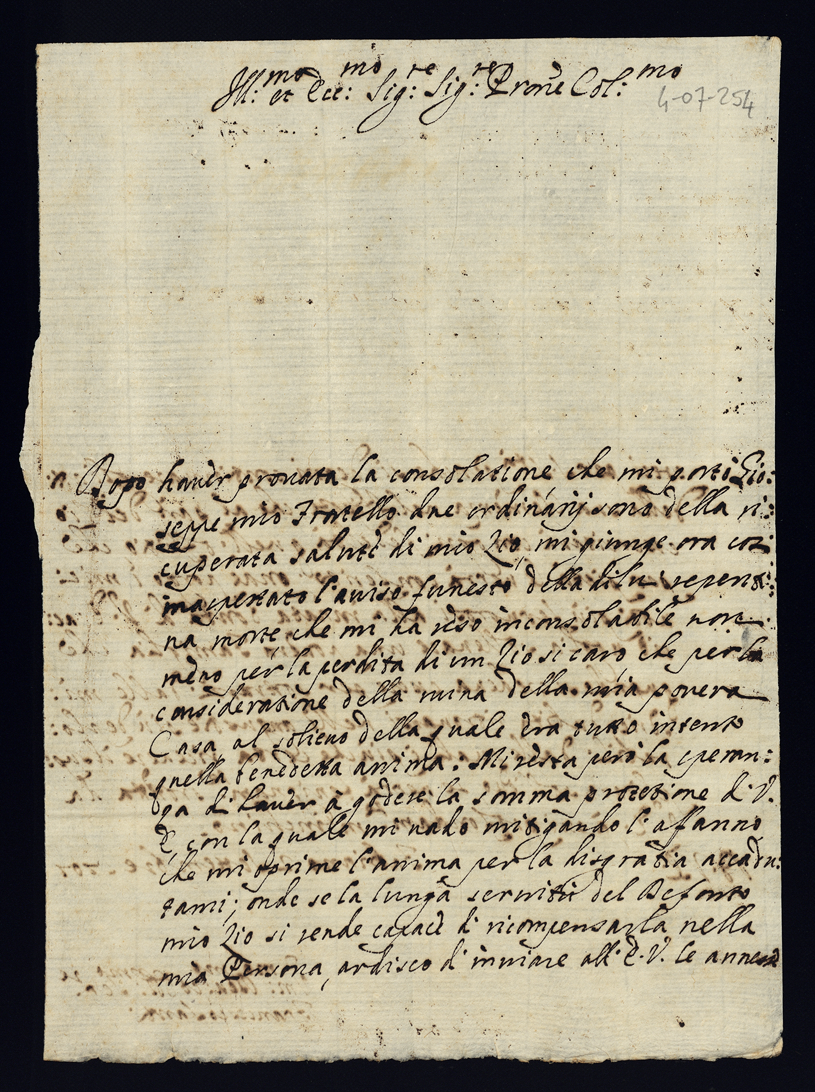 Ill:mo et Ecc:mo Sig:re Sig:re Prone Col:mo
4-07-254
Dopo haver provata la consolatione che mi portò Gio:
seppe mio Fratello due ordinarij sono della ri:
cuperata salute di mio Zio, mi giunge ora cosi
inaspettato l'aviso funesto della di lui repenti:
na morte che mi ha reso inconsolabile non
meno per la perdita di un Zio si caro che per la
consideratione della ruina della mia povera
Casa al solievo della quale era tutto intento
quella benedetta anima: Mi resta però la speran:
za di haver à godere la somma protetione di V.
E. con la quale mi vado mitigando l'affanno
che mi oprime l'anima per la disgratia accadu:
tami; onde se la lunga servitù del Defonto
mio Zio si rende capace di ricompensarla nella
mia Persona, ardisco di inviare all'E.V. le annesse